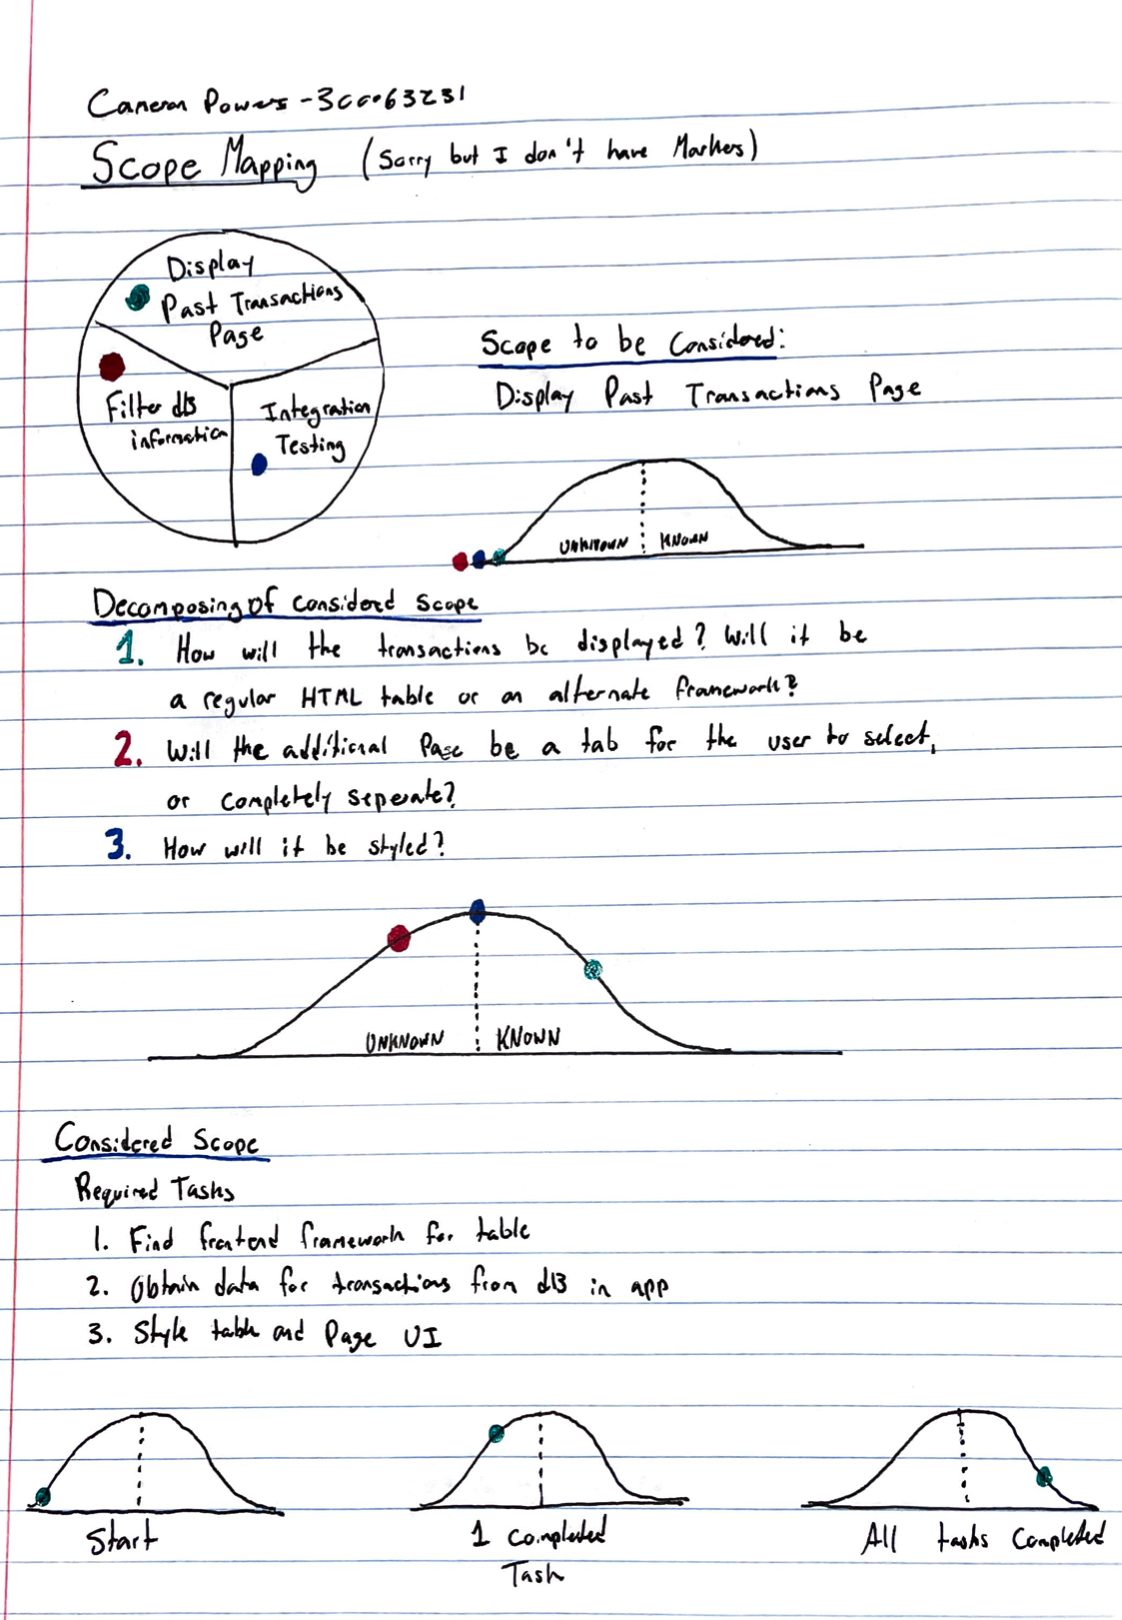 Cameron Powers - 300063231
Scope Mapping (Sorry but I don't have Markers)
Display
Past Transactions
Page
Filter dB
information
Integration
Testing
Scope to be Considered:
Display Past Transactions Page
UNKNOWN KNOWN
Decomposing of Considered Scope
1. How will the transactions be displayed? Will it be
a regular HTML table or an alternate framework?
2. Will the additional Page be a tab for the user to select,
or completely seperate?
3. How will it be styled?
UNKNOWN KNOWN
Considered Scope
Required Tasks
1. Find frontend framework for table
2. Obtain data for transactions from dB in app
3. Style table and Page UI
Start
1 Completed
Task
All tasks Completed